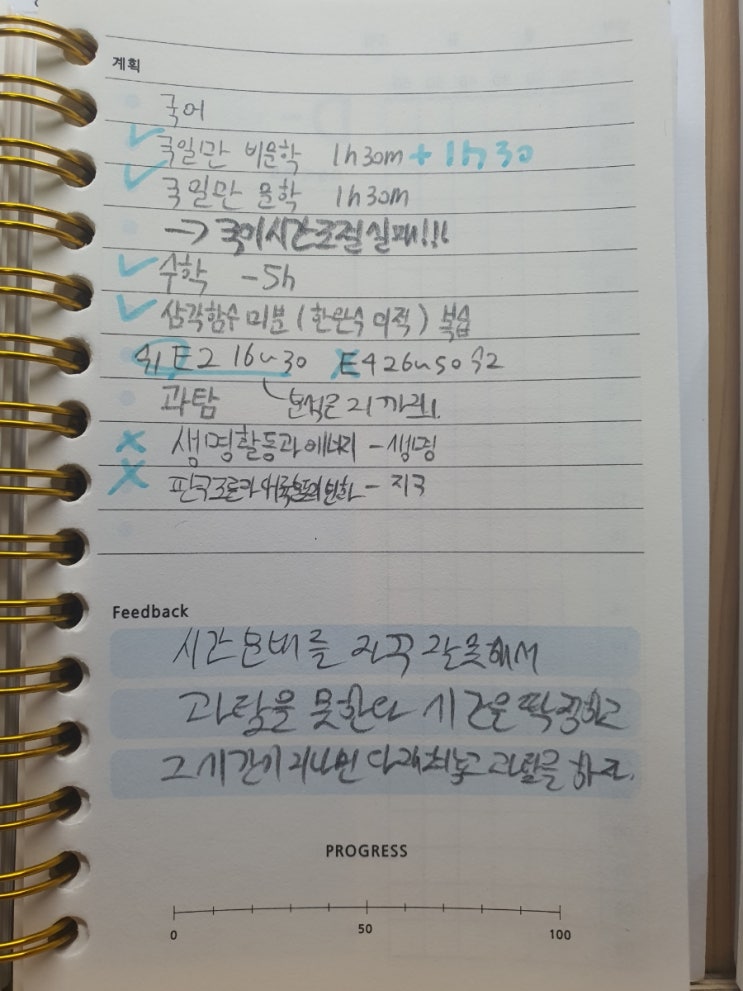 계획
국어
✓ 국일만 비문학 1h30m + 1h30
✓ 국일만 문학 1h30m
→ 국어시간조절실패!!!
✓ 수학 - 5h
✓ 삼각함수 미분 (한완수 미적) 복습
E2 16~30 X E4 26~50
과탐 분석은 21까지.
X 생명활동과 에너지 - 생명
X 판구조론과 - 지구
Feedback
시간 분배를 자꾸 잘못해서
과탐을 못한다 시간을 딱 정하고
그 시간이 지나면 다 과탐을 하자.
PROGRESS
0 50 100